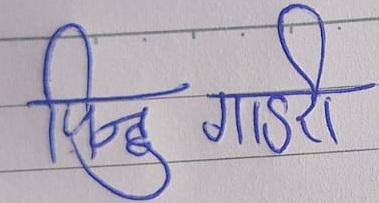 पिन्टू गाडरी